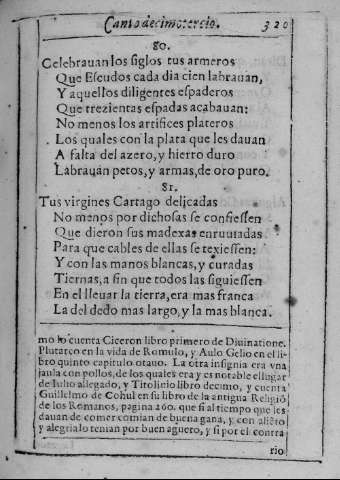 Canto decimotercio.
320
80.
Celebrauan los siglos tus armeros
Que Escudos cada dia cien labrauan,
Y aquellos diligentes espaderos
Que trezientas espadas acabauan:
No menos los artifices plateros
Los quales con la plata que les dauan
A falta del azero, y hierro duro
Labrauan petos, y armas, de oro puro.
81.
Tus virgines Cartago delicadas
No menos por dichosas se confiessen
Que dieron sus madexas enruuiadas
Para que cables de ellas se texiessen:
Y con las manos blancas, y curadas
Tiernas, a fin que todos las siguiessen
En el lleuar la tierra, era mas franca
La del dedo mas largo, y la mas blanca.
mo lo cuenta Ciceron libro primero de Diuinatione.
Plutarco en la vida de Romulo, y Aulo Gelio en el li-
bro quinto capitulo otauo. La otra insignia era vna
jaula con pollos, de los quales era y es notable el lugar
de Iulio allegado, y Titoliuio libro decimo, y cuenta
Guillelmo de Cohul en su libro de la antigua Religiõ
de los Romanos, pagina 260. que si al tiempo que les
dauan de comer comian de buena gana, y con aliẽto
y alegria lo tenian por buen aguero, y si por el contra
rio